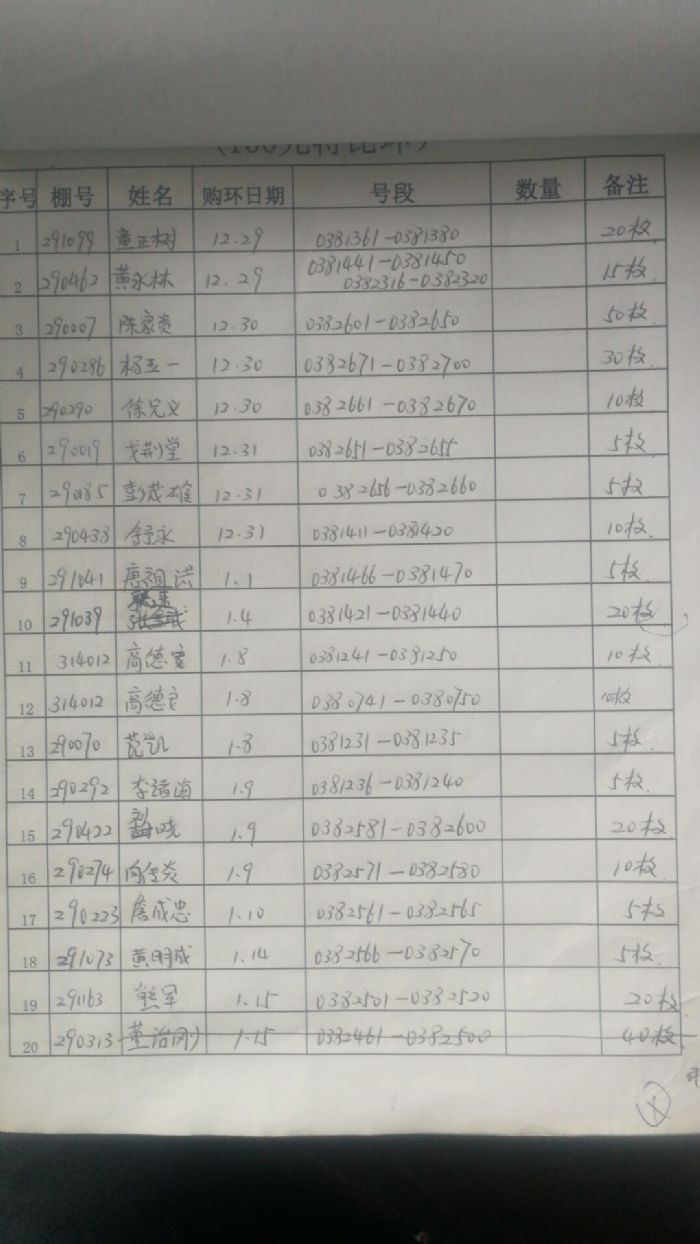 （100元特比环）
序号 棚号 姓名 购环日期 号段 数量 备注
1 291099 童正树 12.29 0381361-0381380 20枚
2 290462 黄永林 12.29 0381441-0381450 0382316-0382320 15枚
3 290007 陈家贵 12.30 0382601-0382650 50枚
4 290286 杨五一 12.30 0382671-0382700 30枚
5 290290 徐兄义 12.30 0382661-0382670 10枚
6 290019 戈荆堂 12.31 0382651-0382655 5枚
7 290185 彭茂雄 12.31 0382656-0382660 5枚
8 290433 舒永 12.31 0381411-0381420 10枚
9 291041 唐祖洪 1.1 0381466-0381470 5枚
10 291039 1.4 0381421-0381440 20枚
11 314012 高德安 1.8 0381241-0381250 10枚
12 314012 高德安 1.8 0380741-0380750 10枚
13 290070 范凯 1.8 0381231-0381235 5枚
14 290292 李 1.9 0381236-0381240 5枚
15 290422 晓 1.9 0382581-0382600 20枚
16 290274 向 炎 1.9 0382571-0382580 10枚
17 290223 詹成忠 1.10 0382561-0382565 5枚
18 291073 黄明成 1.14 0382566-0382570 5枚
19 291163 熊军 1.15 0382501-0382520 20枚
20 290313 董治刚 1.15 0382461-0382500 40枚